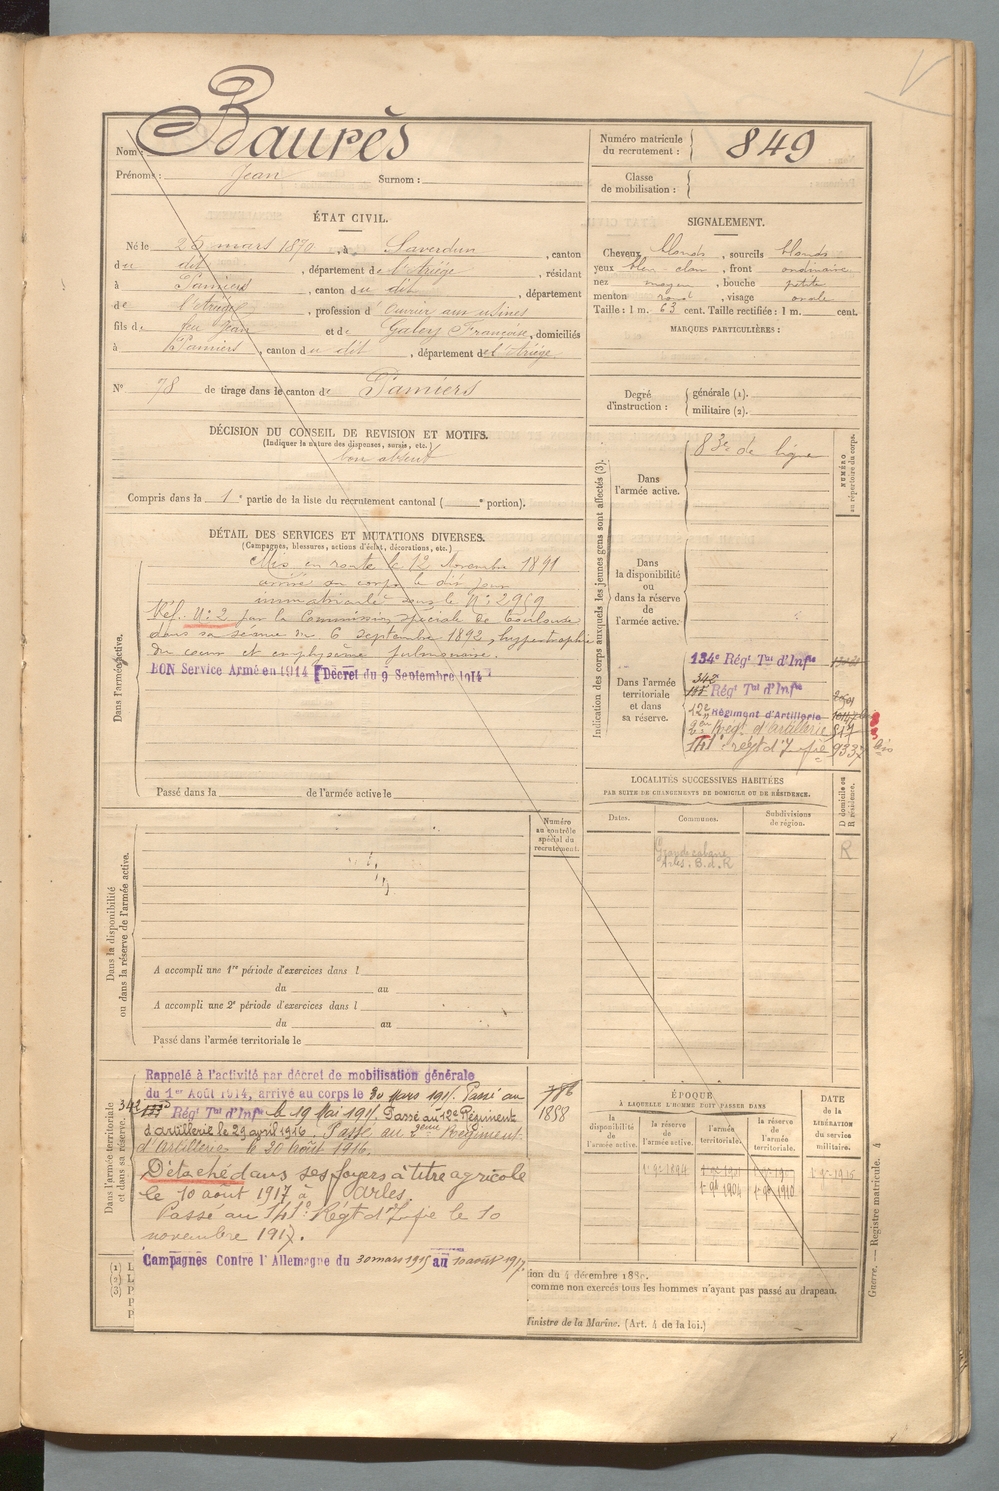 Baurès
Nom :
Prénoms : Jean Surnom :
Numéro matricule
du recrutement : 849
Classe
de mobilisation :
ÉTAT CIVIL.
Né le 25 mars 1870, à Saverdun, canton
du dit, département de l'Ariège, résidant
à Pamiers, canton du dit, département
de l'Ariège, profession d'ouvrier aux usines
fils de feu Jean et de Galey Françoise, domiciliés
à Pamiers, canton du dit, département de l'Ariège
N° 78 de tirage dans le canton de Pamiers
SIGNALEMENT.
Cheveux blonds, sourcils blonds
yeux bleu clair, front ordinaire
nez moyen, bouche petite
menton rond, visage ovale
Taille : 1 m. 63 cent. Taille rectifiée : 1 m. cent.
MARQUES PARTICULIÈRES :
Degré
d'instruction :
générale (1).
militaire (2).
DÉCISION DU CONSEIL DE REVISION ET MOTIFS.
(Indiquer la nature des dispenses, sursis, etc.)
bon absent
Compris dans la 1e partie de la liste du recrutement cantonal ( e portion).
DÉTAIL DES SERVICES ET MUTATIONS DIVERSES.
(Campagnes, blessures, actions d'éclat, décorations, etc.)
Dans l'armée active.
Mis en route le 12 Novembre 1891
arrivé au corps le dit jour
immatriculé sous le N° 2959
Réf. N° 2 par la Commission spéciale de Toulouse
dans sa séance du 6 septembre 1892, hypertrophie
du cœur et emphysème pulmonaire.
BON Service Armé en 1914 (Décret du 9 Septembre 1914)
Passé dans la de l'armée active le
Indication des corps auxquels les jeunes gens sont affectés (3).
NUMÉRO
au répertoire du corps.
Dans
l'armée active.
83e de ligne
Dans
la disponibilité
ou
dans la réserve
de l'armée active.
Dans l'armée
territoriale
et dans
sa réserve.
134e Régt Tal d'Infie
342
Régt Tal d'Infie
12e Régiment d'Artillerie
2e Régt d'Artillerie 817
141e régt d'Infie 9337 bis
LOCALITÉS SUCCESSIVES HABITÉES
PAR SUITE DE CHANGEMENTS DE DOMICILE OU DE RÉSIDENCE.
Dates.
Communes.
Subdivisions
de région.
D domicile ou
R résidence.
Arles B. d. R
R
Dans la disponibilité
ou dans la réserve de l'armée active.
Numéro
au contrôle
spécial du
recrutement.
A accompli une 1re période d'exercices dans l
du au
A accompli une 2e période d'exercices dans l
du au
Passé dans l'armée territoriale le
Dans l'armée territoriale
et dans sa réserve.
Rappelé à l'activité par décret de mobilisation générale
du 1er Août 1914, arrivé au corps le 30 Mars 1915. Passé au
342 Régt Tal d'Infie le 19 Mai 1915. Passé au 12e Régiment
d'artillerie le 29 avril 1916. Passé au 2ème Régiment
d'Artillerie le 30 août 1916.
Détaché dans ses foyers à titre agricole
le 10 août 1917 à Arles.
Passé au 141e Régt d'Infie le 10
novembre 1917.
Campagnes Contre l'Allemagne du 30 mars 1915 au 10 août 1917.
786
1858
ÉPOQUE
À LAQUELLE L'HOMME DOIT PASSER DANS
la
disponibilité
de
l'armée active.
la réserve
de
l'armée active.
l'armée
territoriale.
la réserve
de
l'armée
territoriale.
DATE
de la
LIBÉRATION
du service
militaire.
1er 9bre 1894
1er 9bre 1904
1er 9bre 1910
(1) L
(2) L
(3) P
P
P
tion du 4 décembre 1889.
comme non exercés tous les hommes n'ayant pas passé au drapeau.
Ministre de la Marine. (Art. 4 de la loi.)
Guerre. — Registre matricule. 4